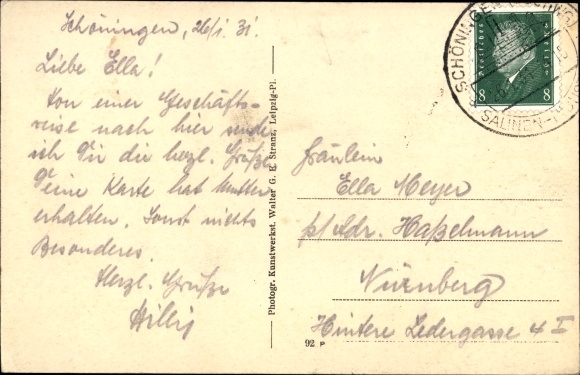 Schöningen, 26/1. 31.
Liebe Ella!
Von einer Geschäfts-
reise nach hier sende
ich Dir die herzl. Grüße.
Deine Karte hat Mutter
erhalten. Sonst nichts
Besonderes.
Herzl. Grüße
Willi
Photogr. Kunstwerkst. Walter G. E. Stranz, Leipzig-Pl.
92 P
SCHÖNINGEN
SALINEN-
8 8
Fräulein
Ella Meyer
p/ Adr. Haßelmann
Nürnberg
Hintere Ledergasse 4 I